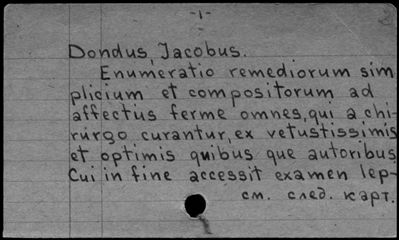 -1-
Dondus, Jacobus.
Enumeratio remediorum sim
plicium et compositorum ad
affectus ferme omnes, qui a chi-
rurgo curantur, ex vetustissimis
et optimis quibus que autoribus
Cui in fine accessit examen lep-
см. след. карт.